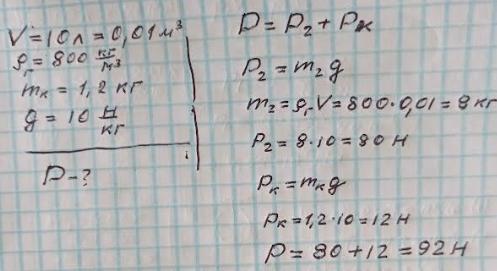 V = 10 л = 0,01 м³
ρг = 800 кг/м³
mк = 1,2 кг
g = 10 Н/кг
P - ?
P = Pг + Pк
Pг = mг g
mг = ρг V = 800 · 0,01 = 8 кг
Pг = 8 · 10 = 80 Н
Pк = mк g
Pк = 1,2 · 10 = 12 Н
P = 80 + 12 = 92 Н